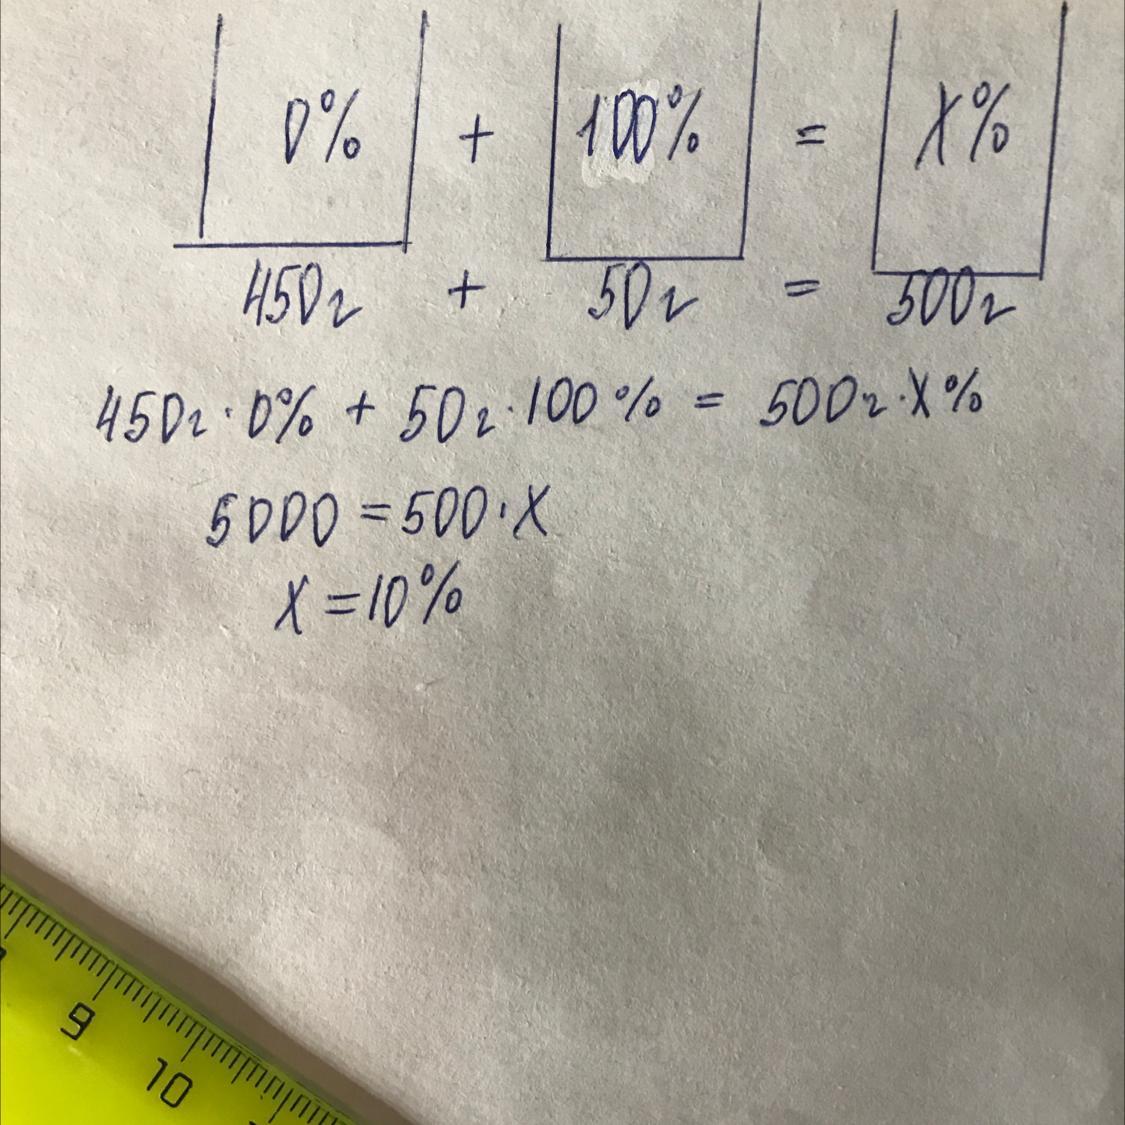 0% + 100% = X%
450г + 50г = 500г
450г · 0% + 50г · 100% = 500г · X%
5000 = 500 · X
X = 10%
9
10